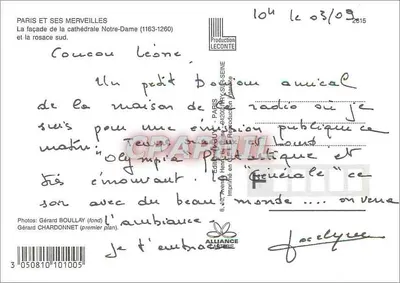 PARIS ET SES MERVEILLES
La façade de la cathédrale Notre-Dame (1163-1260)
et la rosace sud.
Production
LECONTE
10h le 03/09
2615
Coucou Léone.
Un petit bonjour amical
de la maison de la radio où je
suis pour une émission publique ce
matin.
"Olympia" fantastique et
très émouvant la "générale" ce
soir avec du beau monde .... on verra
l'ambiance.
je t'embrasse
Jocelyne
Photos: Gérard BOULLAY (fond)
Gérard CHARDONNET (premier plan).
ALLIANCE
3 050810 101005